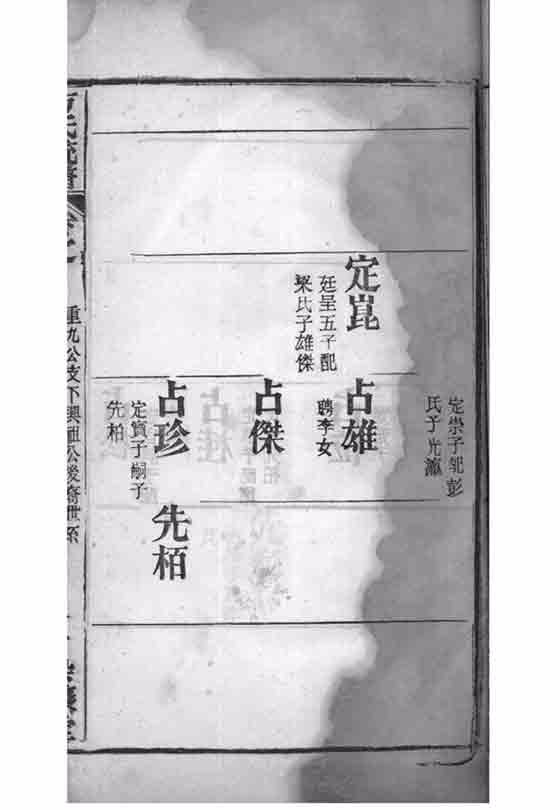 定崇子配彭
氏子光瀛
定崑
廷呈五子配
梁氏子雄傑
占雄
聘李女
占傑
占珍
定寳子嗣子
先柏
先栢
重九公支下興祖公後裔世系